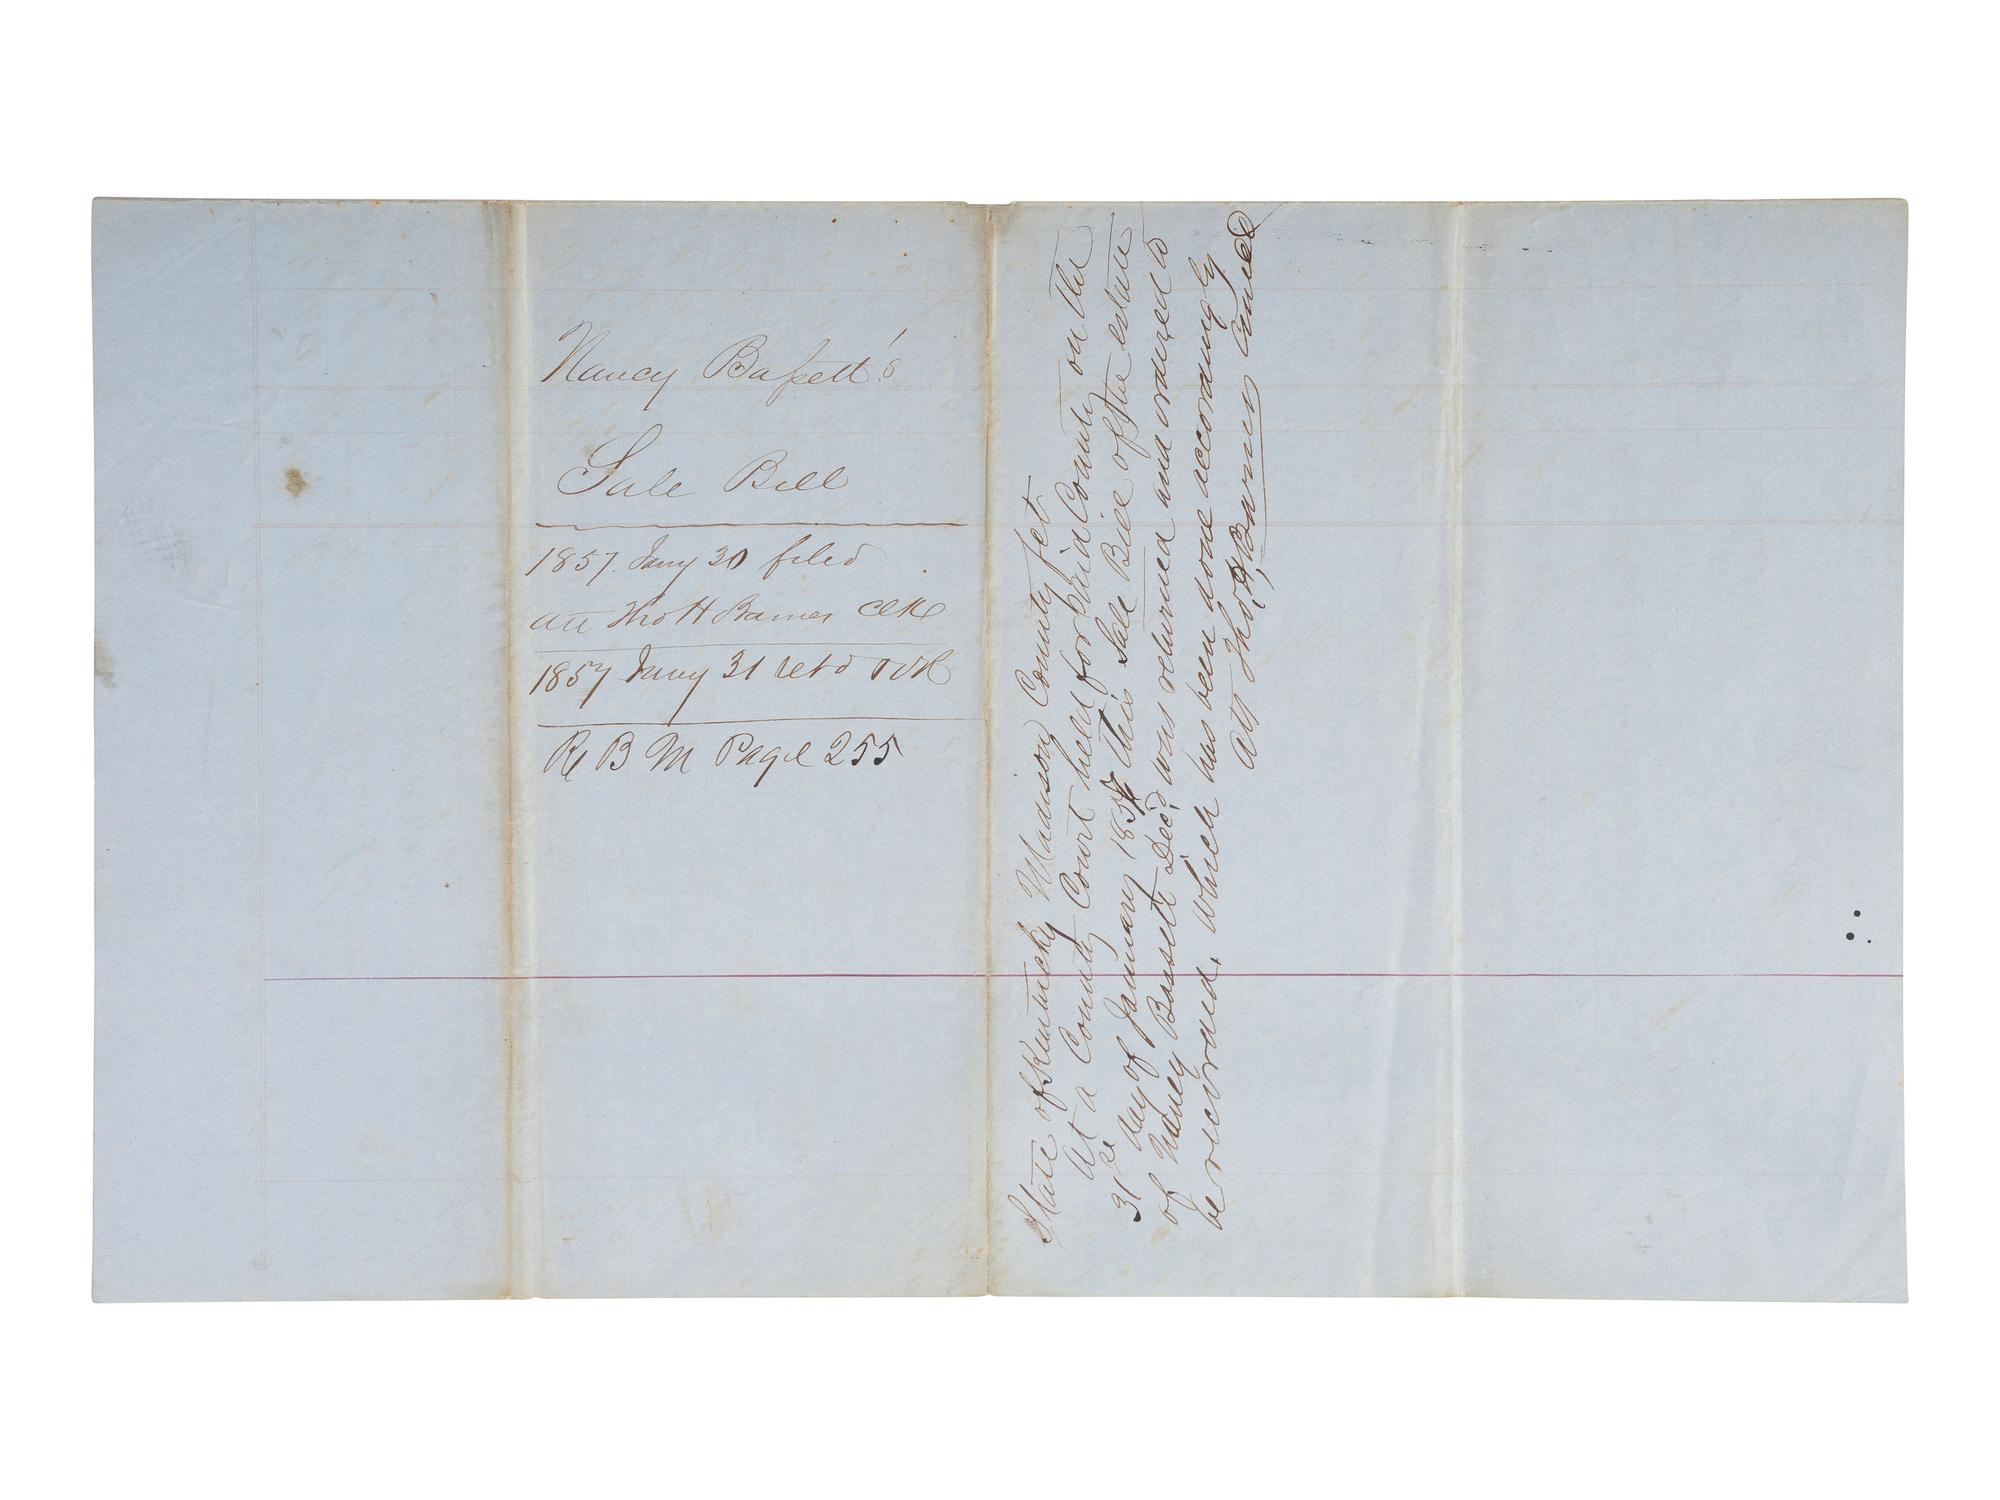 Nancy Bassett's
Sale Bill
1857. Jany 30 filed
att Tho H Barnes Clk
1857 Jany 31 retd & OR
R B M Page 255
State of Kentucky Madison County sct.
At a County Court held for said County on the
31st day of January 1857 this Sale Bill of the estate
of Nancy Bassett Dec'd was returned and ordered to
be recorded. Which has been done accordingly
att Tho. H. Barnes Clerk